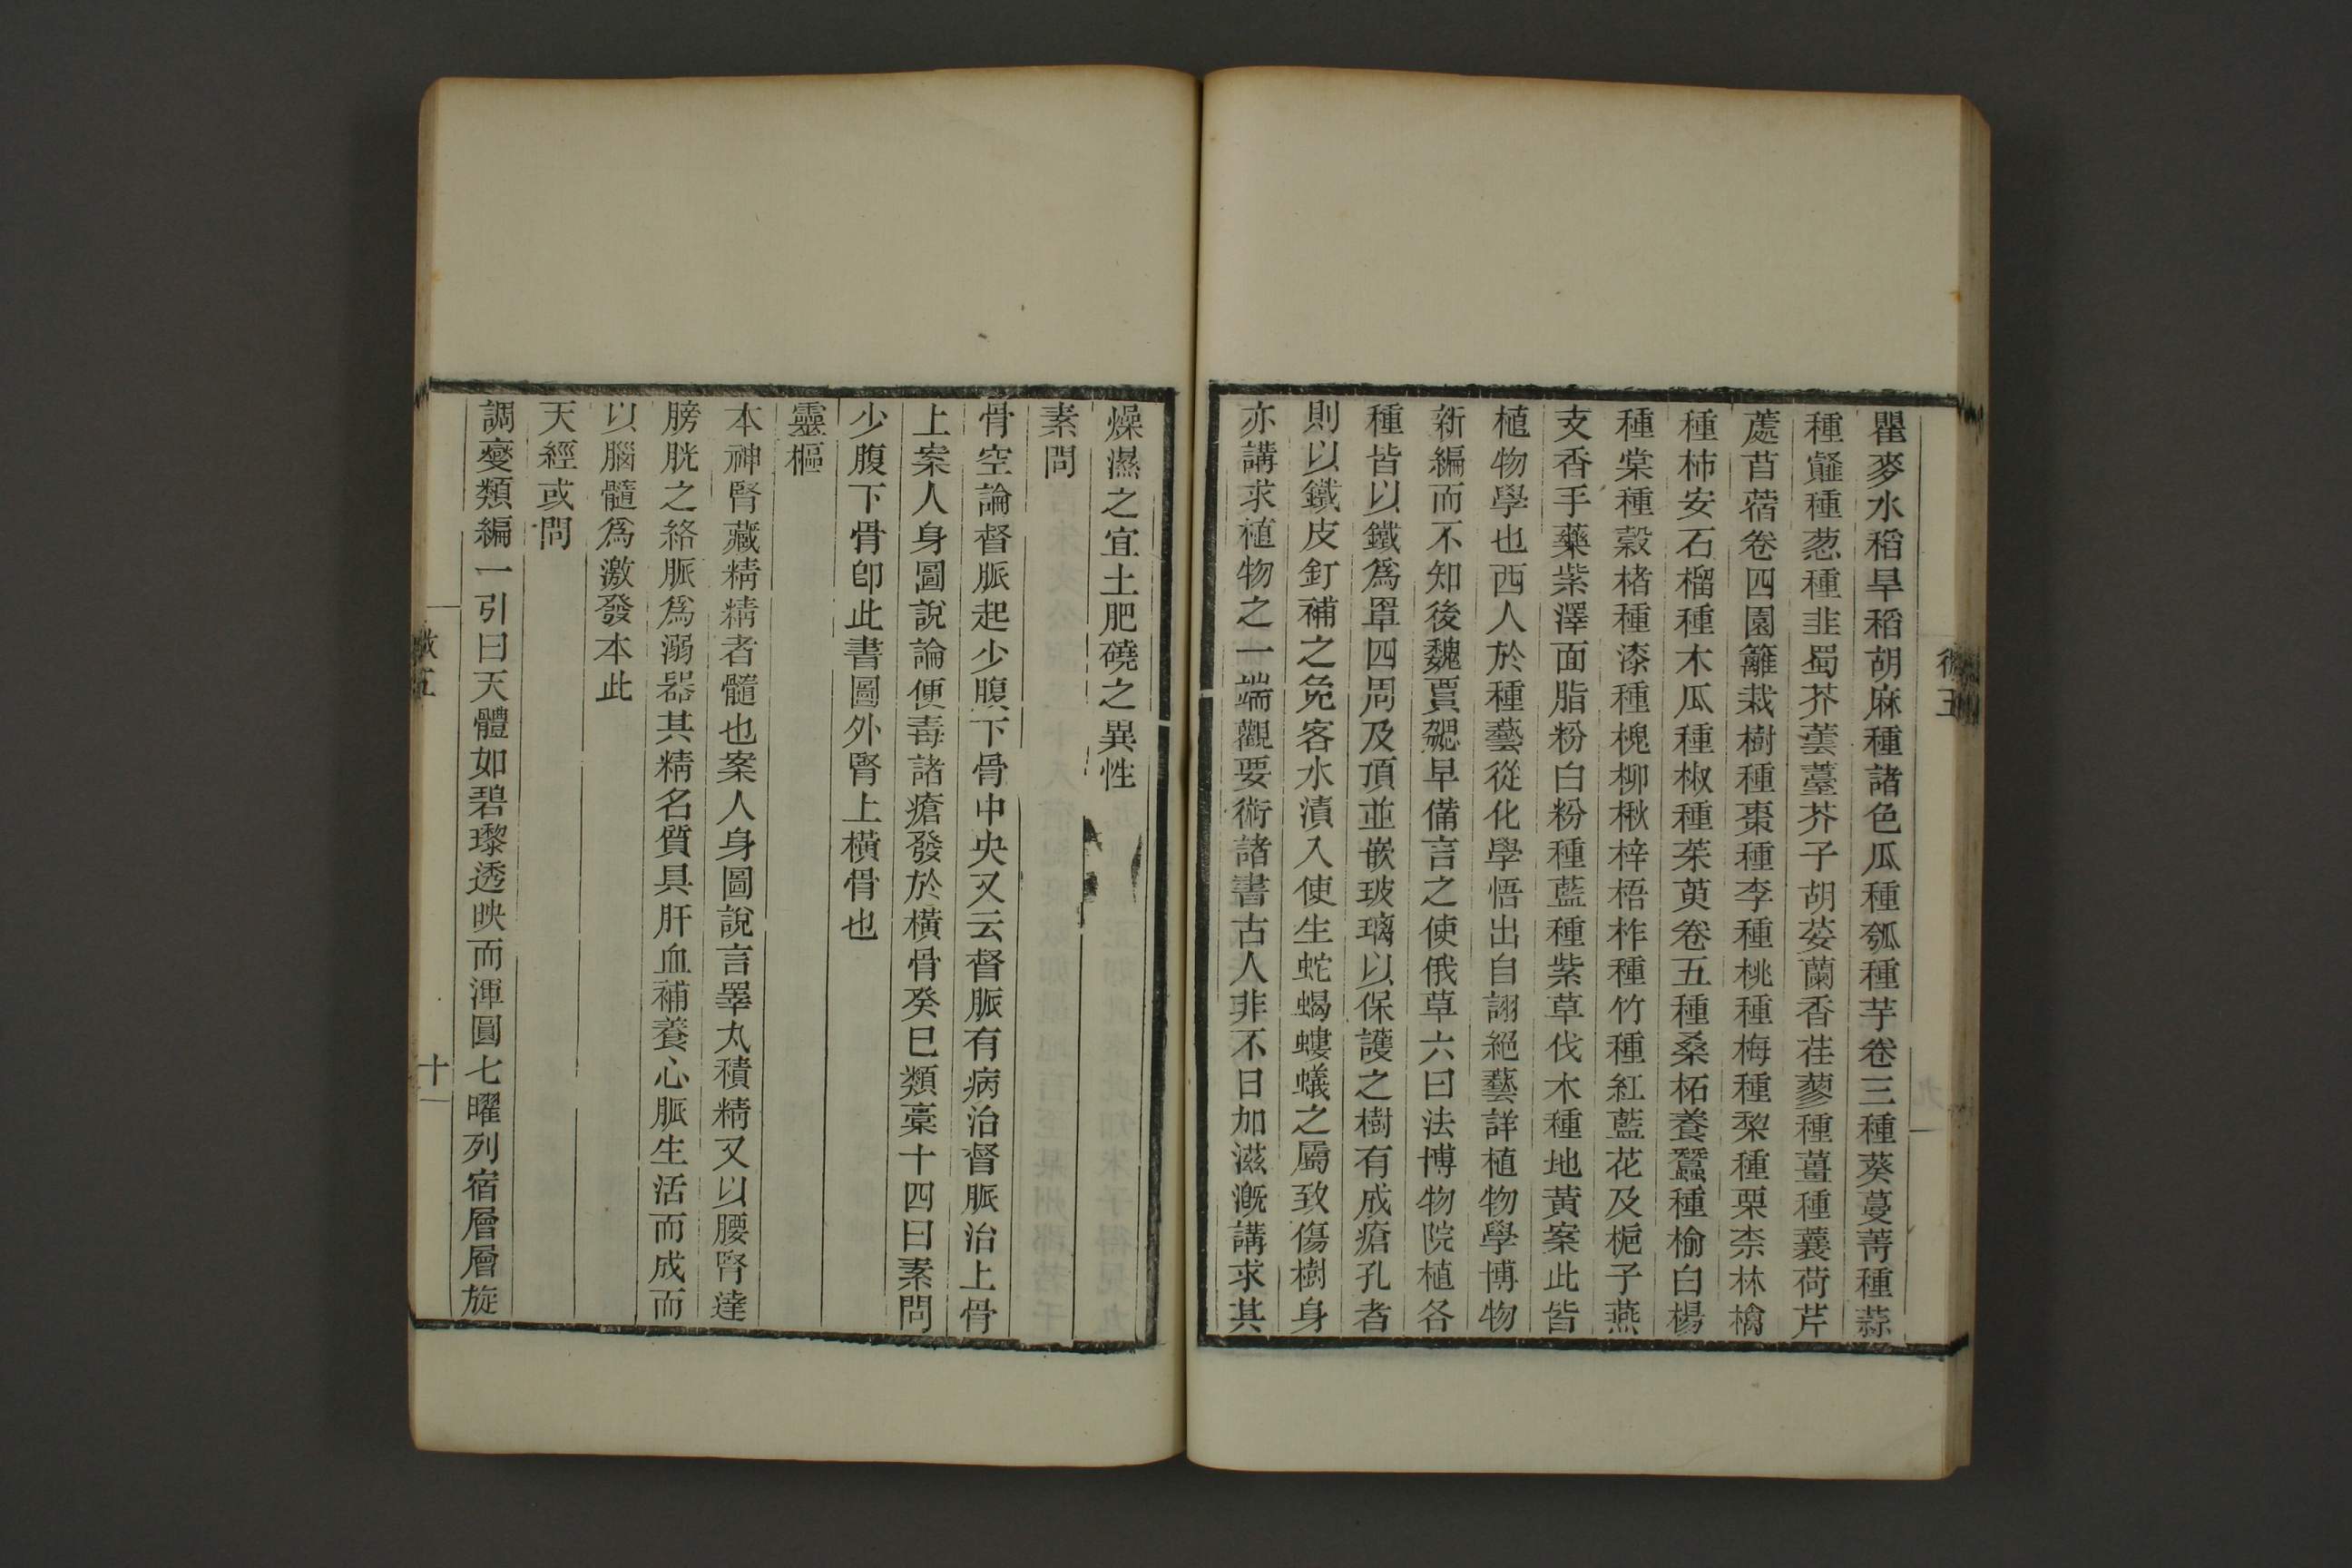 瞿麥水稻旱稻胡麻種諸色瓜種瓠種芋卷三種葵蔓菁種蒜
種䪥種葱種韭蜀芥蕓薹芥子胡荽蘭香荏蓼種薑種蘘荷芹
藘苜蓿卷四園籬栽樹種棗種李種桃種梅種棃種栗柰林檎
種柿安石榴種木瓜種椒種茱萸卷五種桑柘養蠶種榆白楊
種棠種穀楮種漆種槐柳楸梓梧柞種竹種紅藍花及梔子燕
支香手藥紫澤面脂粉白粉種藍種紫草伐木種地黃案此皆
植物學也西人於種藝從化學悟出自詡絕藝詳植物學博物
新編而不知後魏賈勰早備言之使俄草六曰法博物院植各
種皆以鐵爲罩四周及頂並嵌玻璃以保護之樹有成瘡孔者
則以鐵皮釘補之免客水漬入使生蛇蝎螻蟻之屬致傷樹身
亦講求植物之一端觀要術諸書古人非不日加滋漑講求其
九
燥濕之宜土肥磽之異性
素問
骨空論督脈起少腹下骨中央又云督脈有病治督脈治上骨
上案人身圖說論便毒諸瘡發於橫骨癸巳類稾十四曰素問
少腹下骨卽此書圖外腎上橫骨也
靈樞
本神腎藏精精者髓也案人身圖說言睪丸積精又以腰腎達
膀胱之絡脈爲溺器其精名質具肝血補養心脈生活而成而
以腦髓爲激發本此
天經或問
調燮類編一引曰天體如碧瓈透映而渾圓七曜列宿層層旋
十